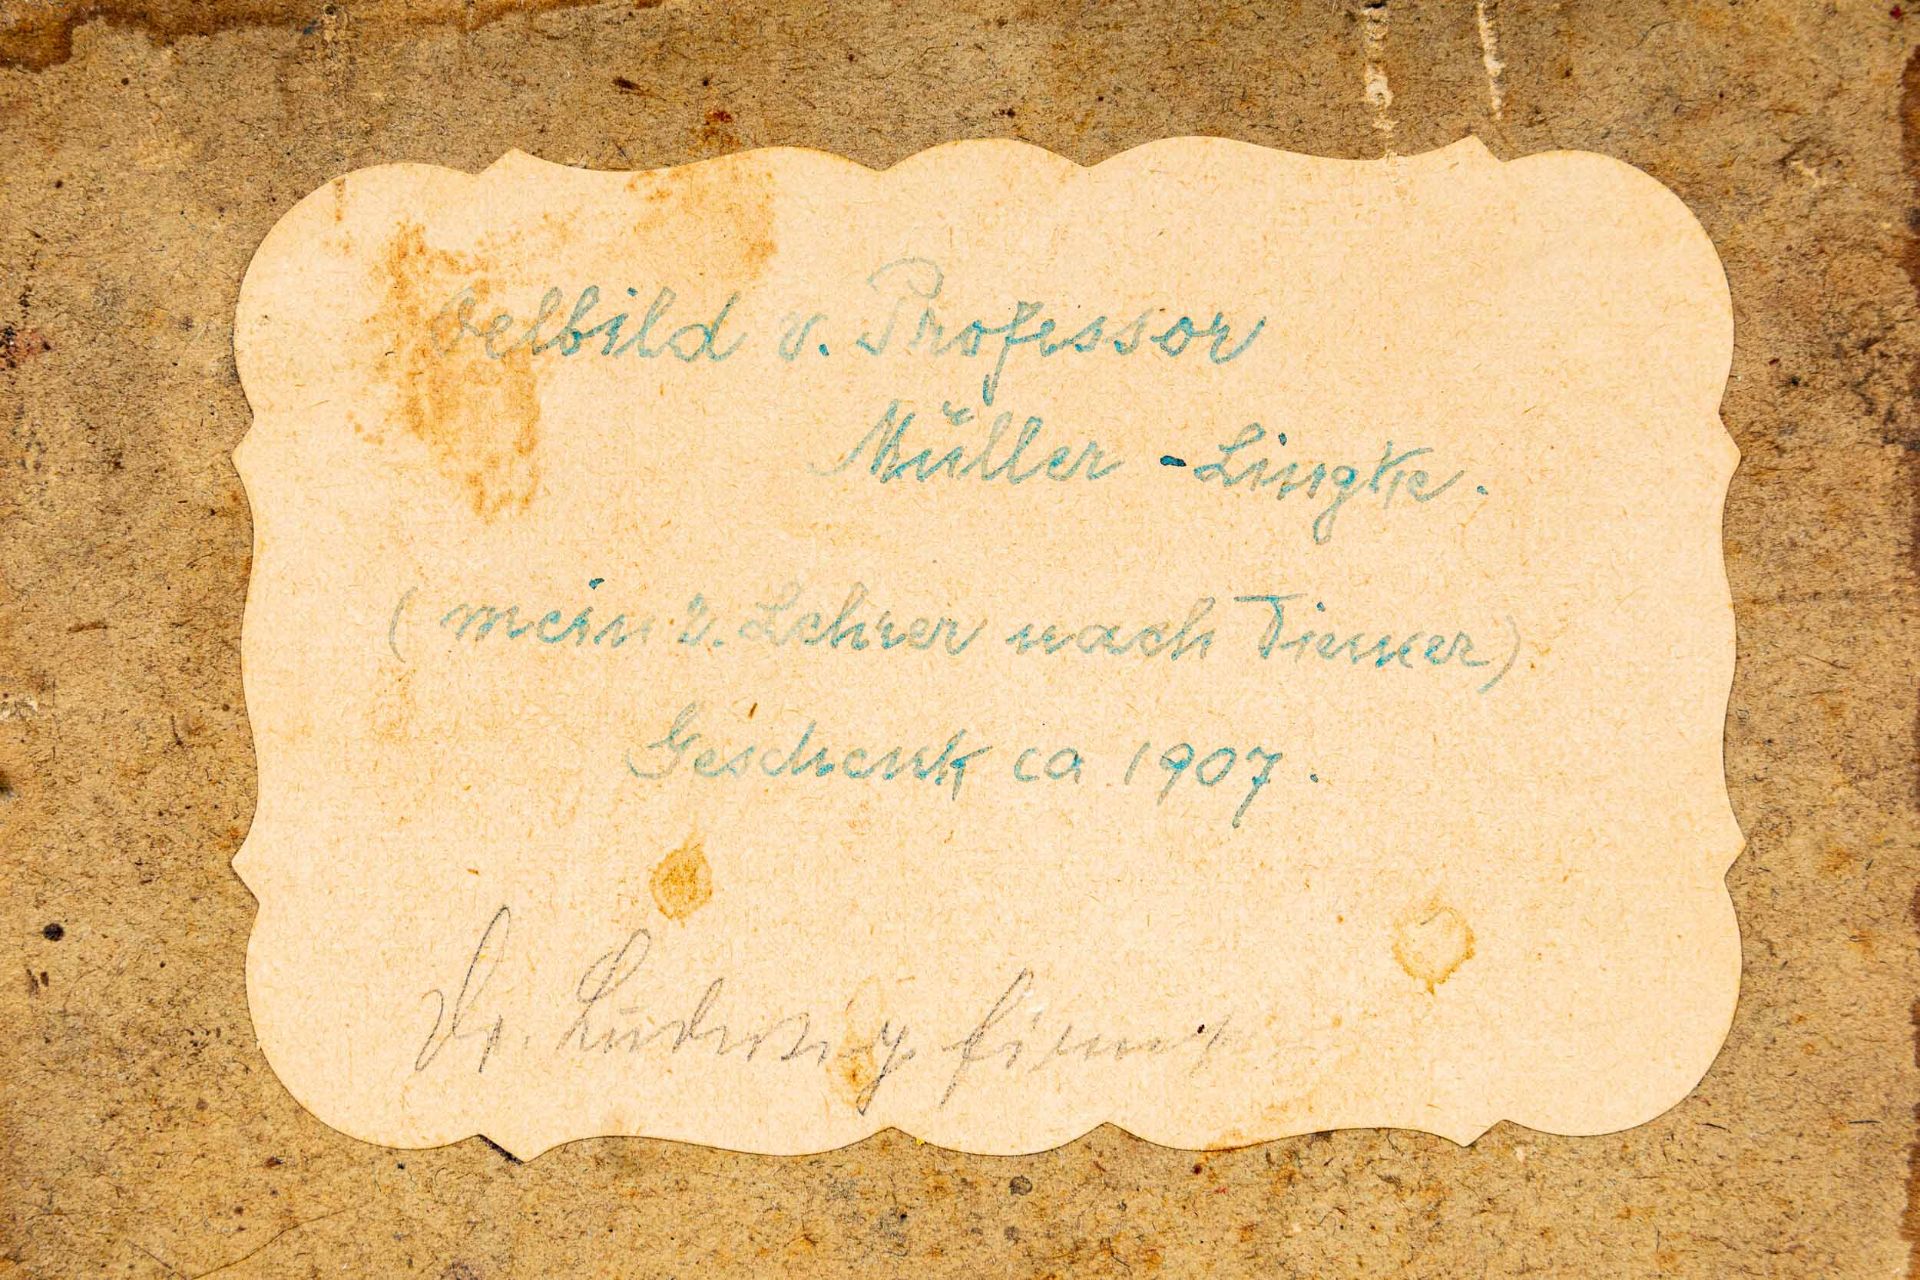 Oelbild v. Professor
Müller - Lingke.
(mein 2. Lehrer nach Tiemer)
Geschenk ca 1907.
Dr. Ludwig